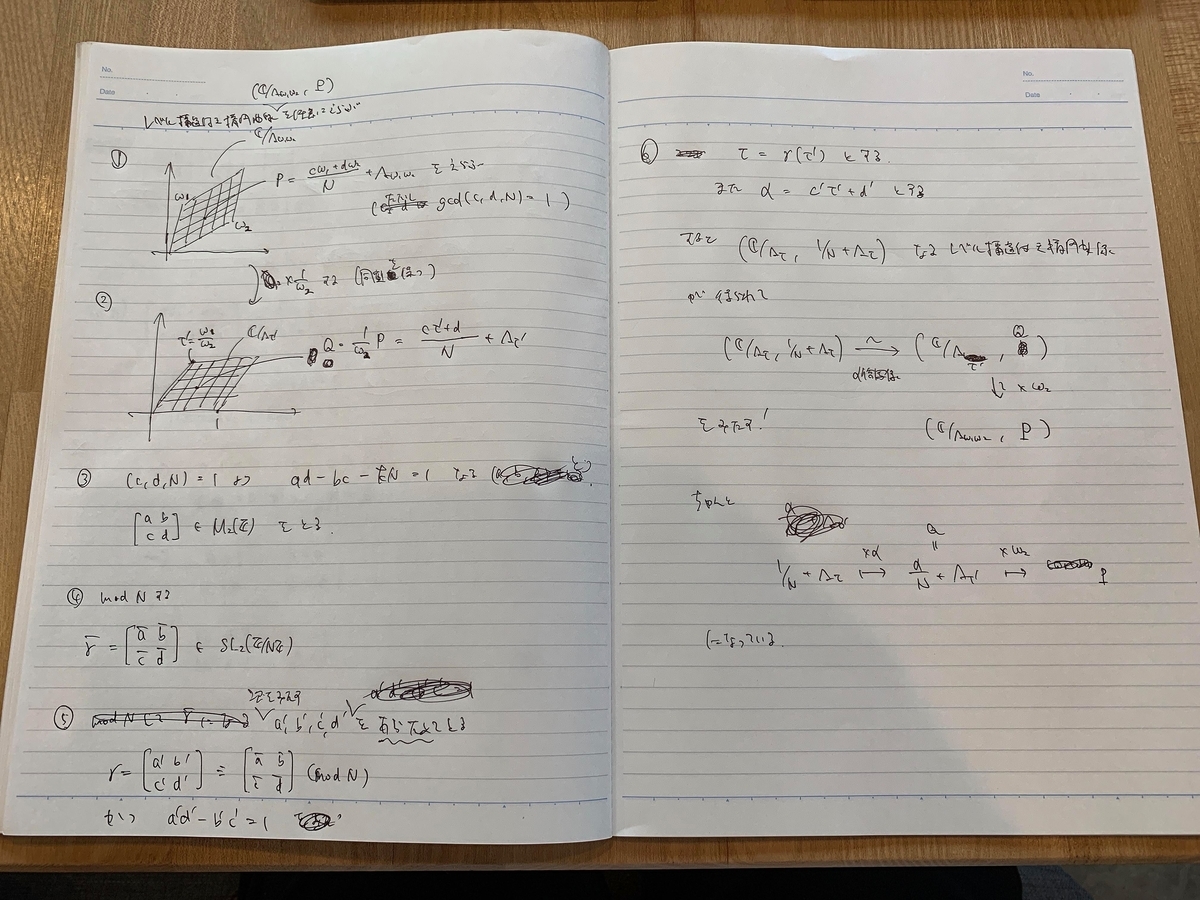 No.
Date
(ℂ/Λω₁ω₂, P)
レベル構造付き楕円曲線 を任意にとる.
ℂ/Λω₁ω₂
①
ω₁
ω₂
P = (cω₁+dω₂)/N + Λω₁ω₂ をとる
(ただし gcd(c,d,N)=1)
×1/ω₂ する (同型を保つ)
②
τ'=ω₁/ω₂
ℂ/Λτ'
1
Q = 1/ω₂ P = (cτ'+d)/N + Λτ'
③ (c,d,N)=1 より ad-bc-kN=1 なる
[a b; c d] ∈ M₂(ℤ) をとる.
④ mod N する
γ̄ = [ā b̄; c̄ d̄] ∈ SL₂(ℤ/Nℤ)
⑤ a',b',c',d' を
γ = [a' b'; c' d'] ≡ [ā b̄; c̄ d̄] (mod N)
かつ a'd'-b'c'=1
No.
Date
⑥ τ = γ(τ') とする.
また α = c'τ'+d' とする
すると (ℂ/Λτ, 1/N+Λτ) なる レベル構造付き楕円曲線
が 得られて
(ℂ/Λτ, 1/N+Λτ) ⥲ (ℂ/Λτ', Q)
↓ × ω₂
をみたす! (ℂ/Λω₁ω₂, P)
ちゃんと
Q
1/N + Λτ ↦ ×α α/N + Λτ' ↦ ×ω₂ P
になっている.